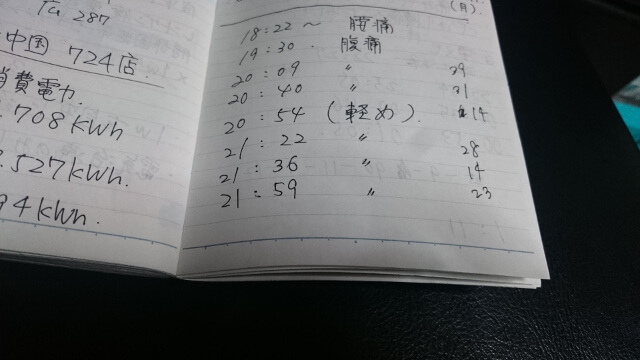 Tu 287
中国 724店.
消費電力.
.708kWh
.527kWh.
94kWh.
(月).
18:22 ~ 腰痛
19:30 . 腹痛
20:09 〃 39
20:40 〃 31
20:54 (軽め). 14
21:22 〃 28
21:36 〃 14
21:59 〃 23